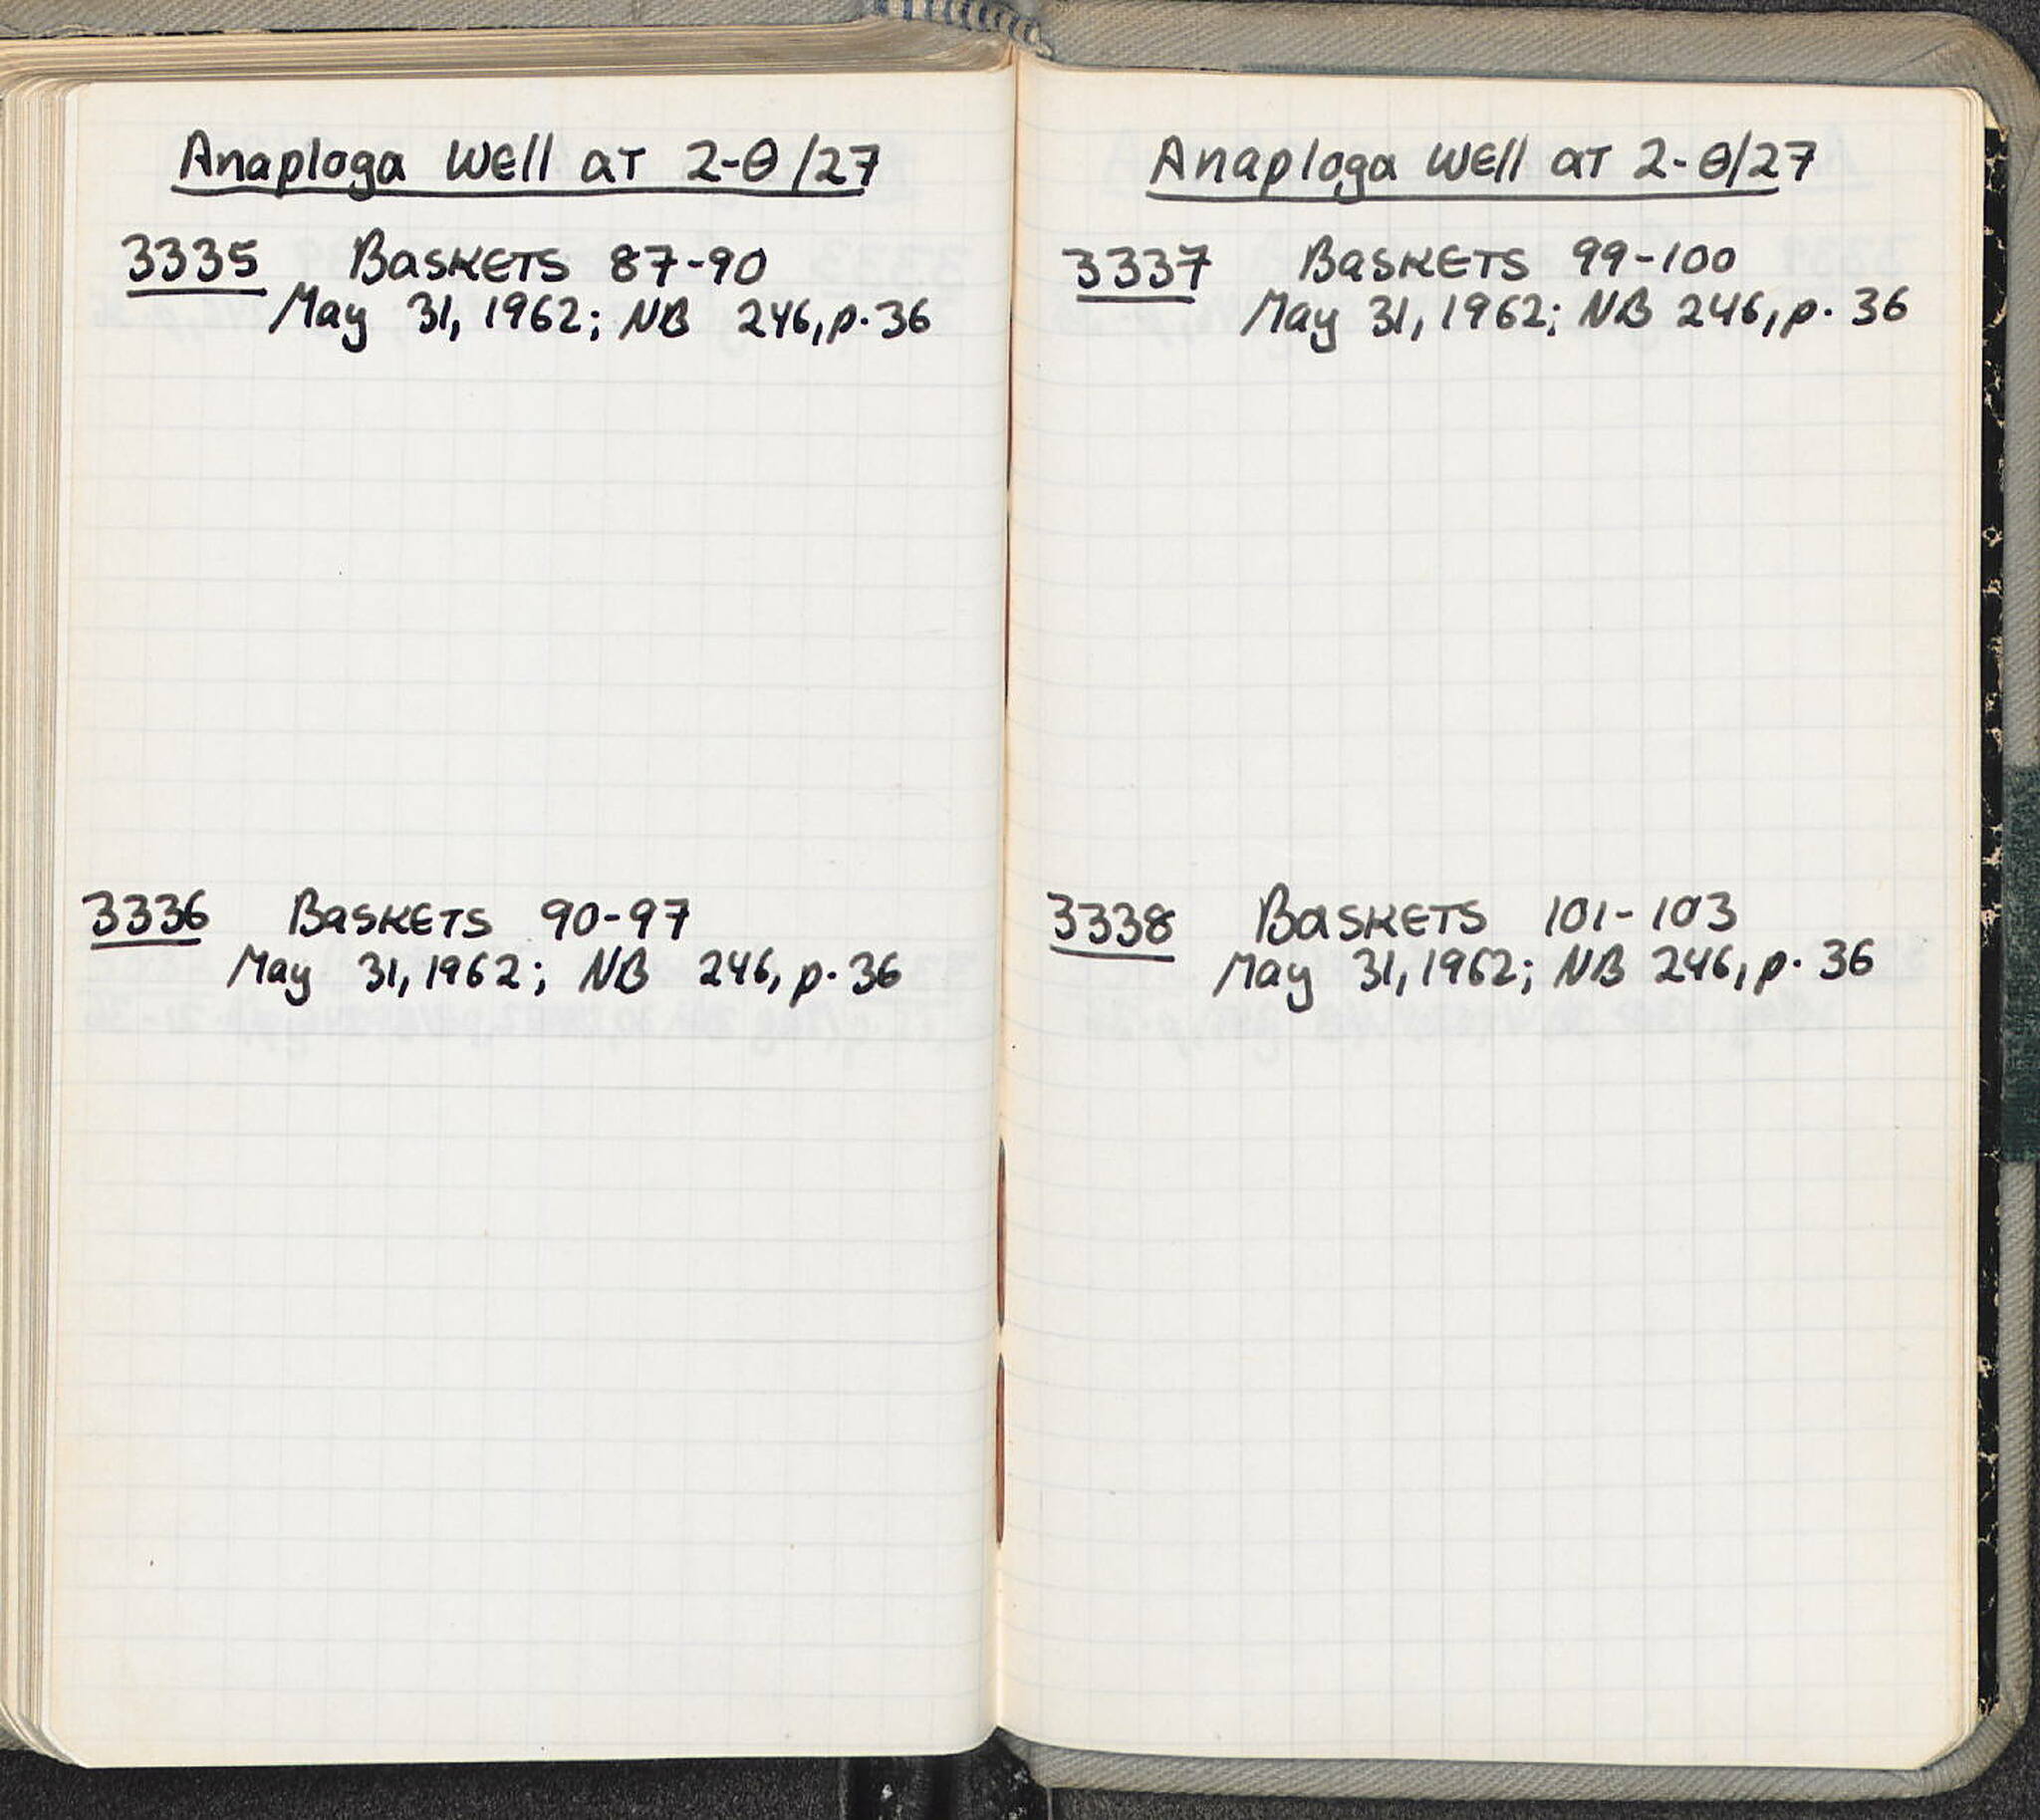 Anaploga Well at 2-Θ/27
3335 Baskets 87-90
May 31, 1962; NB 246, p. 36
3336 Baskets 90-97
May 31, 1962; NB 246, p. 36
Anaploga Well at 2-Θ/27
3337 Baskets 99-100
May 31, 1962; NB 246, p. 36
3338 Baskets 101-103
May 31, 1962; NB 246, p. 36